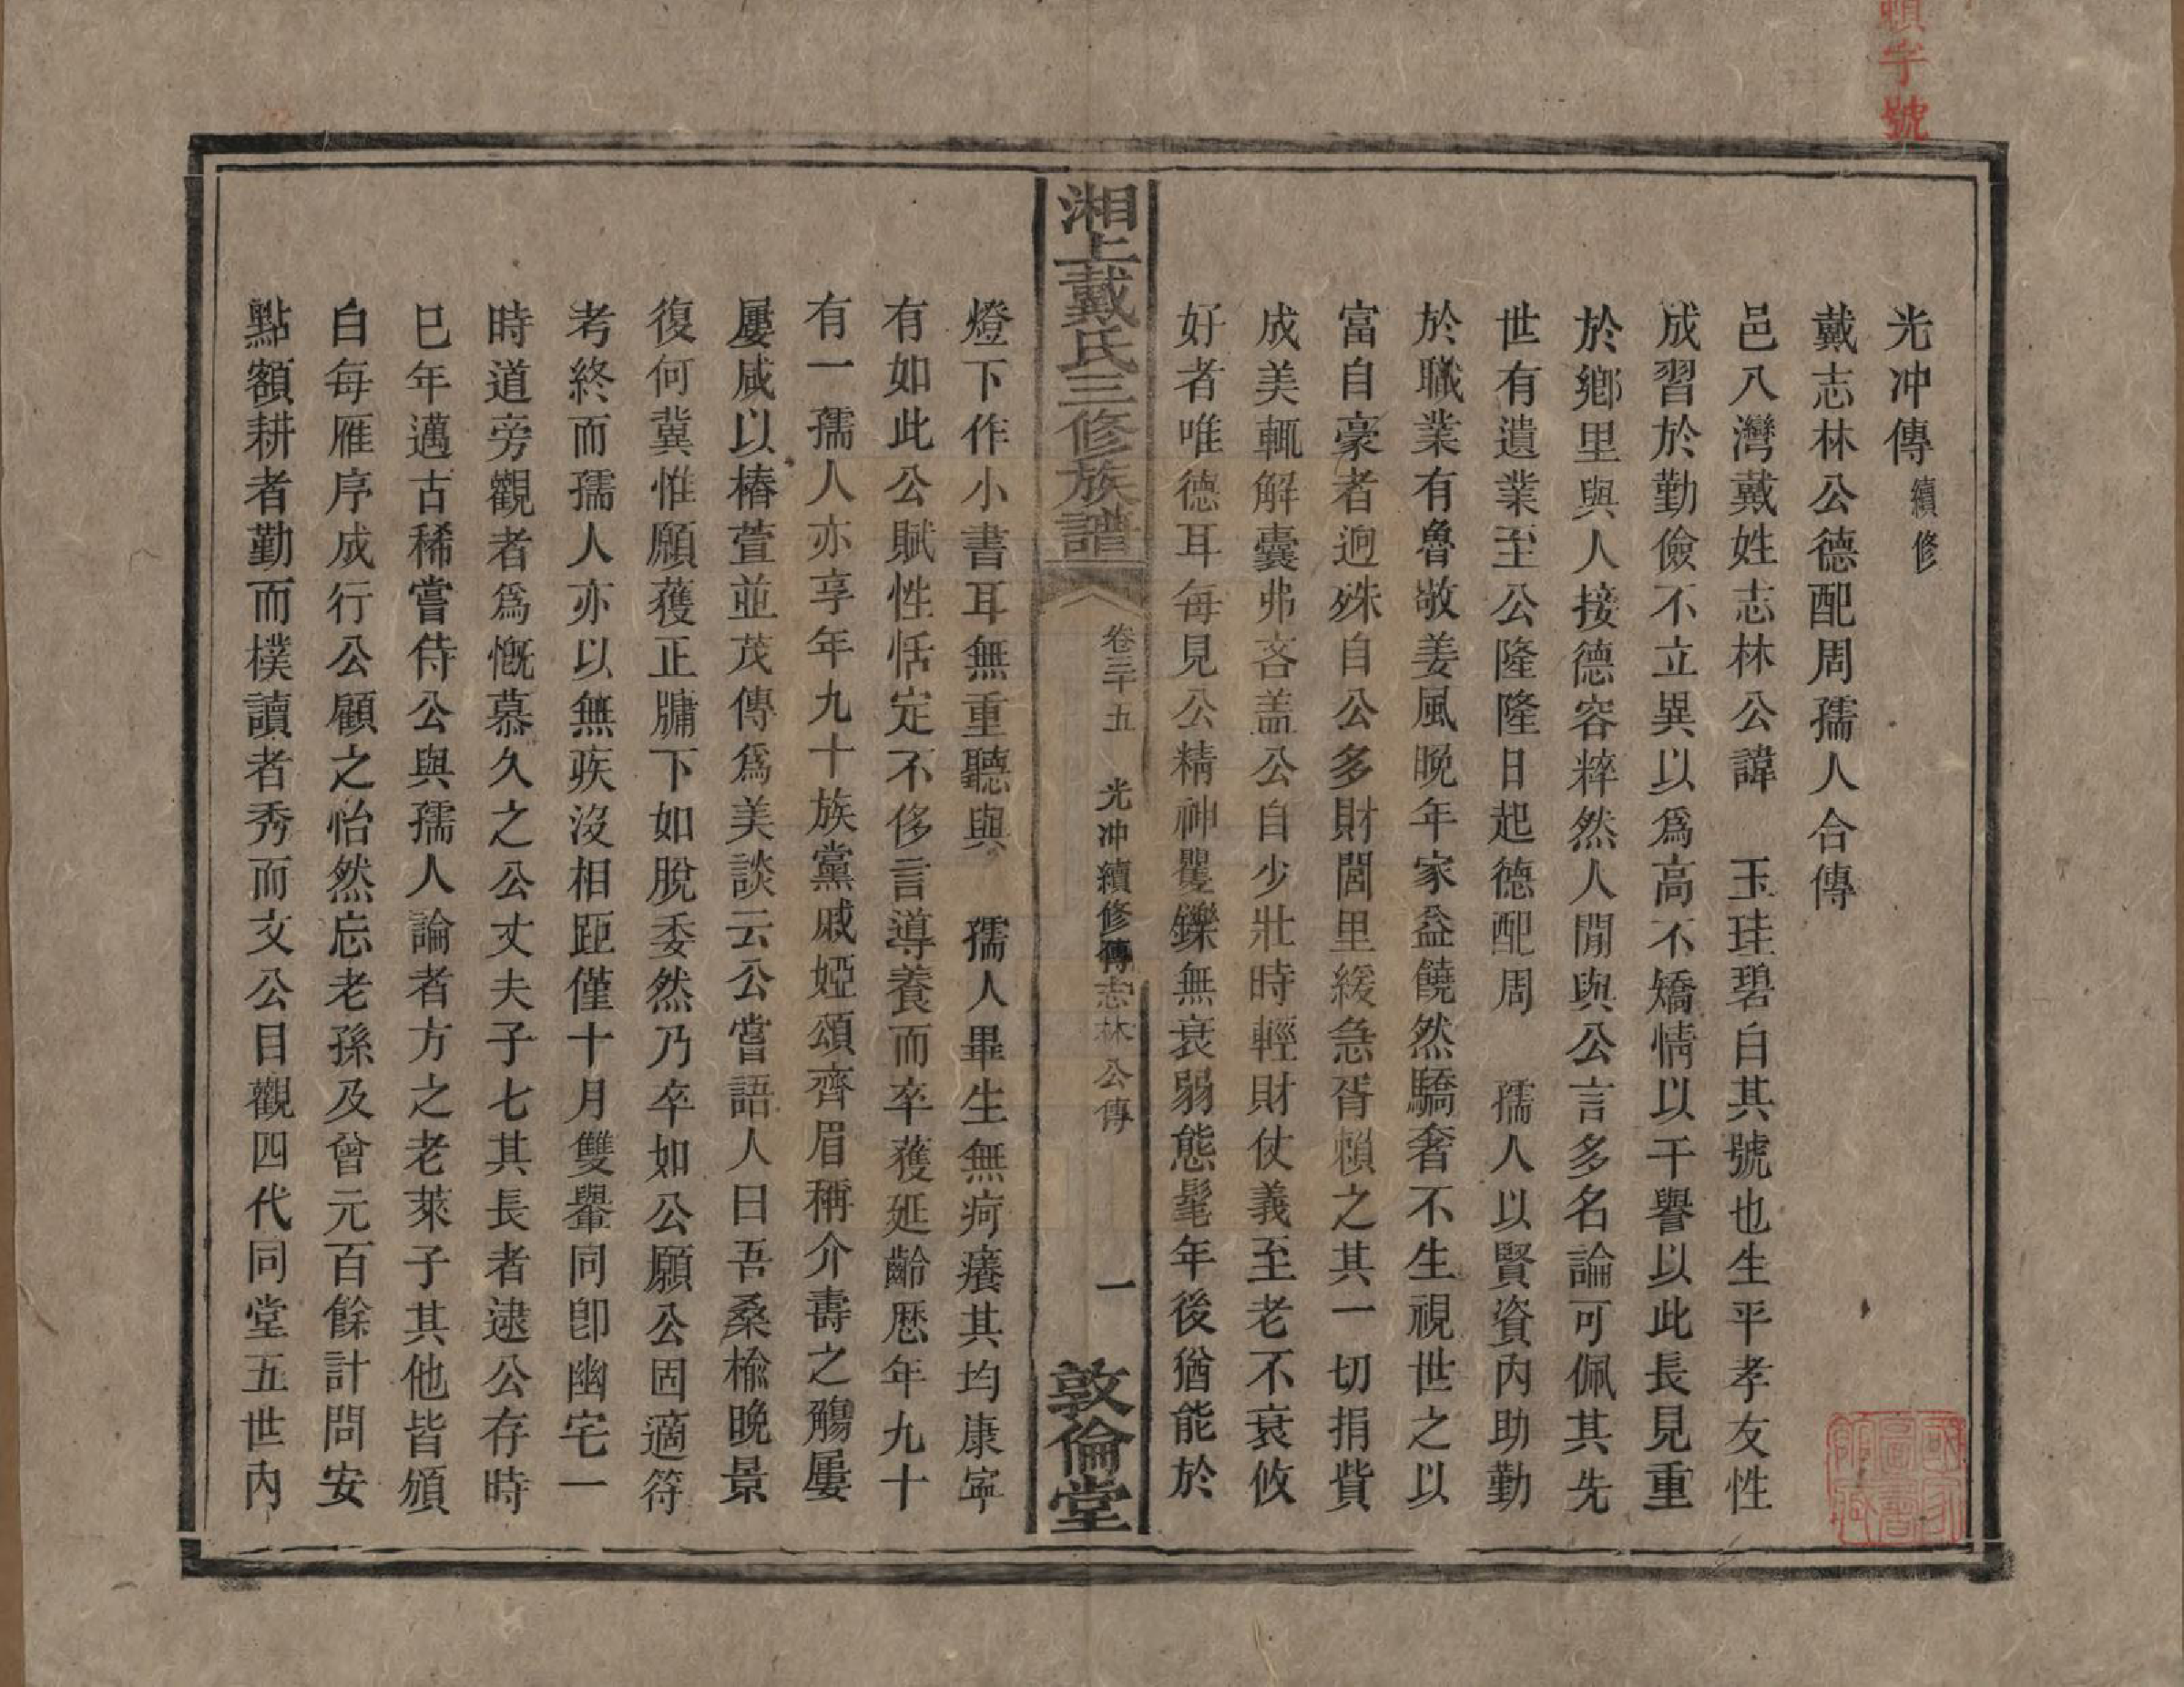 光冲傳續修
戴志林公德配周孺人合傳
邑八灣戴姓志林公諱　玉珪碧白其號也生平孝友性
成習於勤儉不立異以爲高不矯情以干譽以此長見重
於鄉里與人接德容粹然人閒與公言多名論可佩其先
世有遺業至公隆隆日起德配周　孺人以賢資內助勤
於職業有魯敬姜風晚年家益饒然驕奢不生視世之以
富自豪者逈殊自公多財閭里緩急胥賴之其一切捐貲
成美輒解囊弗吝盖公自少壯時輕財仗義至老不衰攸
好者唯德耳每見公精神矍鑠無衰弱態髦年後猶能於
湘上戴氏三修族譜
卷三十五
光冲續修傳志林公傳
一
敦倫堂
燈下作小書耳無重聽與　孺人畢生無疴癢其均康寧
有如此公賦性恬定不侈言導養而卒獲延齡歷年九十
有一孺人亦享年九十族黨戚婭頌齊眉稱介壽之觴屢
屢咸以椿萱並茂傳爲美談云公嘗語人曰吾桑榆晚景
復何冀惟願獲正牗下如脫委然乃卒如公願公固適符
考終而孺人亦以無疾沒相距僅十月雙轝同卽幽宅一
時道旁觀者爲慨慕久之公丈夫子七其長者逮公存時
巳年邁古稀嘗侍公與孺人論者方之老萊子其他皆頒
白每雁序成行公顧之怡然忘老孫及曾元百餘計問安
點額耕者勤而樸讀者秀而文公目觀四代同堂五世內
字號